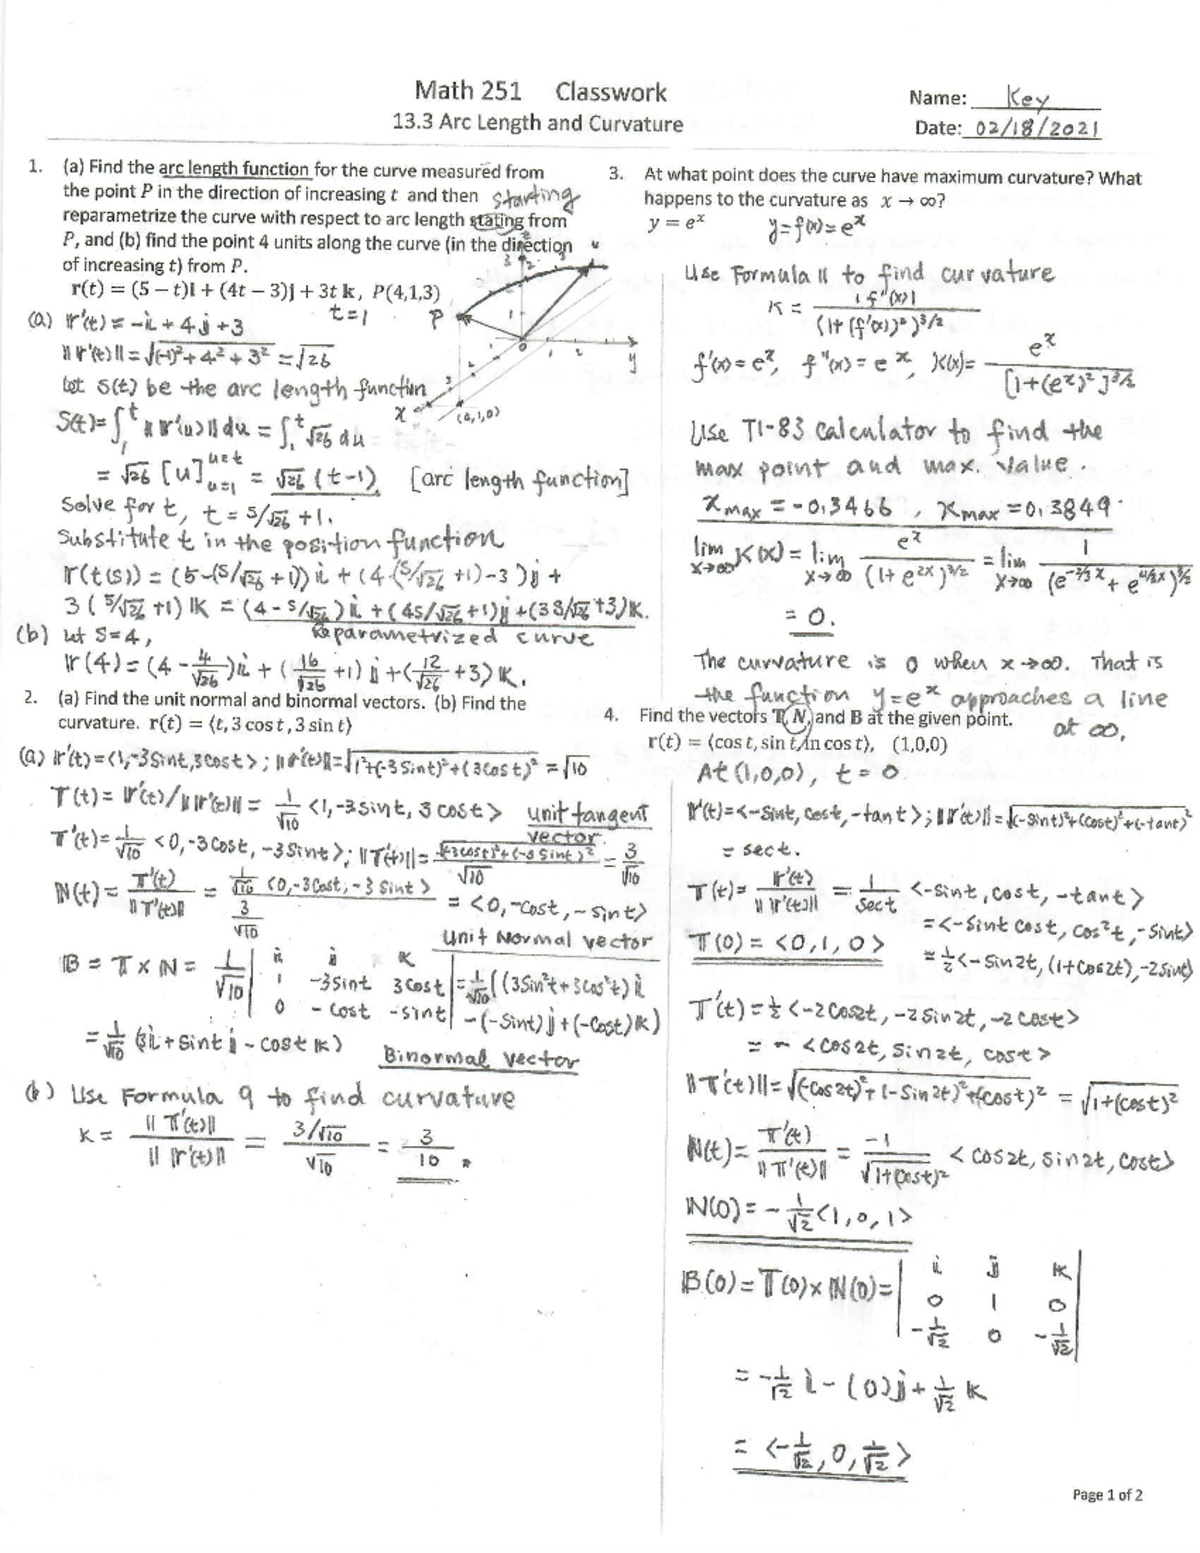 Math 251 Classwork
13.3 Arc Length and Curvature
Name: Key
Date: 02/18/2021
1. (a) Find the arc length function for the curve measured from
the point P in the direction of increasing t and then starting
reparametrize the curve with respect to arc length stating from
P, and (b) find the point 4 units along the curve (in the direction
of increasing t) from P.
r(t) = (5 − t)i + (4t − 3)j + 3t k, P(4,1,3)
t=1
(a) r'(t) = -i + 4j + 3
||r'(t)|| = √((-1)² + 4² + 3²) = √26
Let s(t) be the arc length function
S(t) = ∫₁ᵗ ||r'(u)|| du = ∫₁ᵗ √26 du
= √26 [u] u=t u=1 = √26 (t-1) [arc length function]
Solve for t, t = s/√26 + 1.
Substitute t in the position function
r(t(s)) = (5-(s/√26 + 1)) i + (4(s/√26 + 1) - 3) j +
3(s/√26 + 1) k = (4 - s/√26) i + (4s/√26 + 1) j + (3s/√26 + 3) k.
Reparametrized curve
(b) Let S=4,
r(4) = (4 - 4/√26) i + (16/√26 + 1) j + (12/√26 + 3) k.
P
x
y
(4,1,0)
2. (a) Find the unit normal and binormal vectors. (b) Find the
curvature. r(t) = ⟨t, 3 cos t, 3 sin t⟩
(a) r'(t) = <1, -3sint, 3cost>; ||r'(t)|| = √(1²+(-3sint)²+(3cost)²) = √10
T(t) = r'(t)/||r'(t)|| = 1/√10 <1, -3sint, 3cost> unit tangent
vector.
T'(t) = 1/√10 <0, -3cost, -3sint>; ||T'(t)|| = √((-3cost)²+(-3sint)²)/√10 = 3/√10
N(t) = T'(t)/||T'(t)|| = (1/√10 <0, -3cost, -3sint>)/(3/√10) = <0, -cost, -sint>
Unit Normal vector
B = T × N = 1/√10 | i j k |
| 1 -3sint 3cost | = 1/√10 ((3sin²t+3cos²t) i
| 0 -cost -sint | -(-sint) j + (-cost) k)
= 1/√10 (3i + sint j - cost k) Binormal vector
(b) Use Formula 9 to find curvature
K = ||T'(t)||/||r'(t)|| = (3/√10)/√10 = 3/10.
3. At what point does the curve have maximum curvature? What
happens to the curvature as x → ∞?
y = eˣ y = f(x) = eˣ
Use Formula 11 to find curvature
K = |f''(x)|/(1+(f'(x))²)^3/2
f'(x) = eˣ, f''(x) = eˣ, K(x) = eˣ/[1+(eˣ)²]^3/2
Use TI-83 calculator to find the
max point and max. value.
x max = -0.3466, K max = 0.3849.
lim x→∞ K(x) = lim x→∞ eˣ/(1+e^2x)^3/2 = lim x→∞ 1/(e^-2/3x + e^4/3x)^3/2
= 0.
The curvature is 0 when x→∞. That is
the function y=eˣ approaches a line
at ∞.
4. Find the vectors T, N, and B at the given point.
r(t) = ⟨cos t, sin t, ln cos t⟩, (1,0,0)
At (1,0,0), t = 0
r'(t) = <-sint, cost, -tant>; ||r'(t)|| = √((-sint)²+(cost)²+(-tant)²)
= sect.
T(t) = r'(t)/||r'(t)|| = 1/sect <-sint, cost, -tant>
= <-sint cost, cos²t, -sint>
T(0) = <0, 1, 0>
= ½<-sin2t, (1+cos2t), -2sint>
T'(t) = ½ <-2cos2t, -2sin2t, -2cost>
= - <cos2t, sin2t, cost>
||T'(t)|| = √((-cos2t)² + (-sin2t)² + (-cost)²) = √(1+(cost)²)
N(t) = T'(t)/||T'(t)|| = -1/√(1+(cost)²) <cos2t, sin2t, cost>
N(0) = -1/√2 <1, 0, 1>
B(0) = T(0) × N(0) = | i j k |
| 0 1 0 |
| -1/√2 0 -1/√2 |
= -1/√2 i - (0) j + 1/√2 k
= <-1/√2, 0, 1/√2>
Page 1 of 2